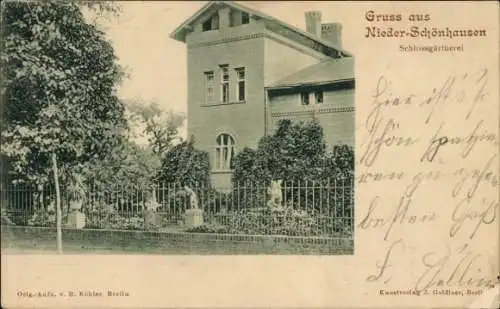 Gruss aus
Nieder-Schönhausen
Schlossgärtnerei
Hier ist's
schön spazie-
ren zu gehe
besten Grüß
Orig.-Aufn. v. R. Köhler, Berlin
Kunstverlag J. Goldiner, Berl